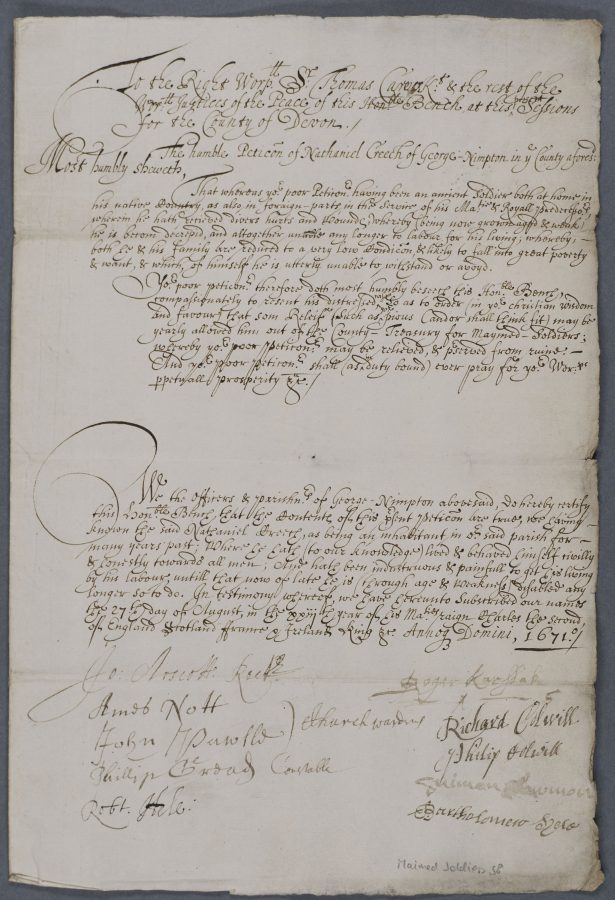 To the Right Worpll Sr Thomas Carew Kt & the rest of the
Worpll Justices of the Peace of this Honble Bench, at this present Sessions
for the County of Devon./
The humble Peticon of Nathaniel Creech of George-Nimpton in ye County aforesd:
Most humbly sheweth,
That whereas yor poor Peticonr having been an antient Soldier both at home in
his native Country, as also in foraign-parts in the Service of his Matie & Royall predecessrs
wherein he hath received divers hurts and wounds, whereby (being now grown aged & weak)
he is become decrepid, and altogether unable any longer to labour for his living; whereby,
both he & his family are reduced to a very low Condicon, & likely to fall into great poverty
& want, & which, of himself he is utterly unable to withstand or avoyd.
Yor poor peticonr therefore doth most humbly beseech this Honble Bench,
compassionately to resent his distresses, so as to order in yor christian wisdom
and favour, that som Releif (such as pious Candor shall think fit) may be
yearly allowed him out of the County-Treasury for Maymed-Soldiers;
whereby yor poor peticonr may be relieved, & pserved from ruine:-
And yor poor Peticonr shall (as in duty bound) ever pray for yor Worps
ppetuall prosperity &c./
We the Officers & parishnrs of George-Nimpton abovesaid, do hereby certify
this Honble Bench, that the Contents of this psent Peticon are true, we having
known the said Nathaniel Creech, as being an inhabitant in or said parish for
many years past; Where he hath (to our knowledge) lived & behaved himself civilly
& honestly towards all men; And hath been industruous & painfull to get his living
by his labour, untill that now of late he is (through age & Weakness) disacted any
longer so to do. In testimony whereof we have hereunto Subscribed our names
the 27th day of August, in the xxiijth year of his Maties raign Charles the second,
of England Scotland ffrance & Ireland King &c Annoq Domini, 1671./
Jo: Arscott Rectr
Roger
Ames Nott
John
Churchwardens
Richard Edwill
Phillip Constable
Philip Edwill
Robt. Hele:
Bartholomew
Maimed Soldiers 58